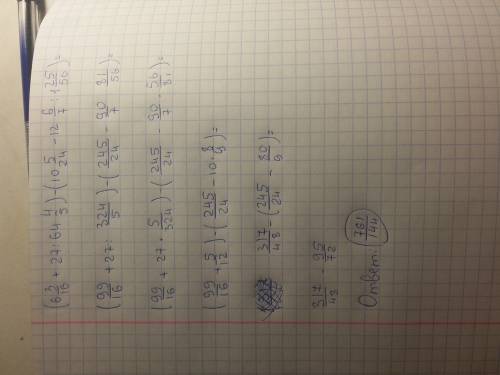 (6 3/16 + 27 : 64 4/5) - (10 5/24 - 12 6/7 : 1 25/56) =
(99/16 + 27 : 324/5) - (245/24 - 90/7 : 81/56) =
(99/16 + 27 · 5/324) - (245/24 - 90/7 · 56/81) =
(99/16 + 5/12) - (245/24 - 10 · 8/9) =
317/48 - (245/24 - 80/9) =
317/48 - 95/72
Ответ: 761/144